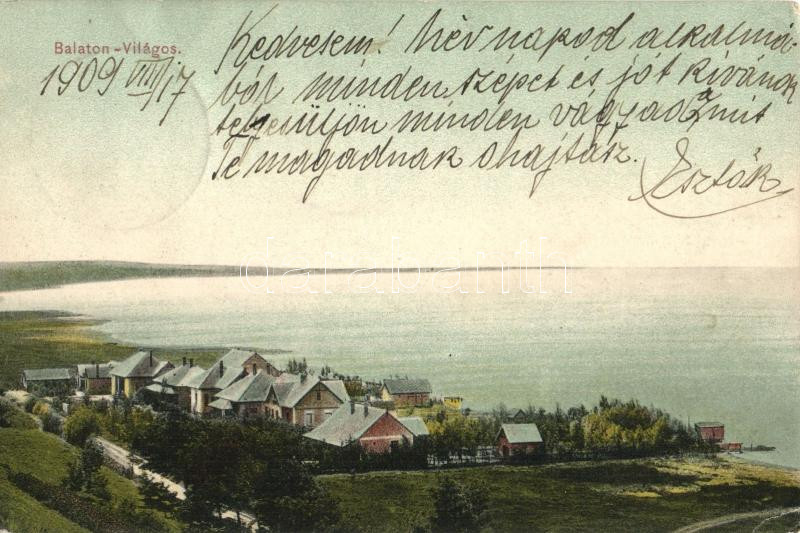 Balaton-Világos.
1909 VIII/17
Kedvesem! Név napod alkalmá-
ból minden szépet és jót kivánok
teljesüljön minden vágyad a mit
Te magadnak ohajtasz.
Esztók
darabanth